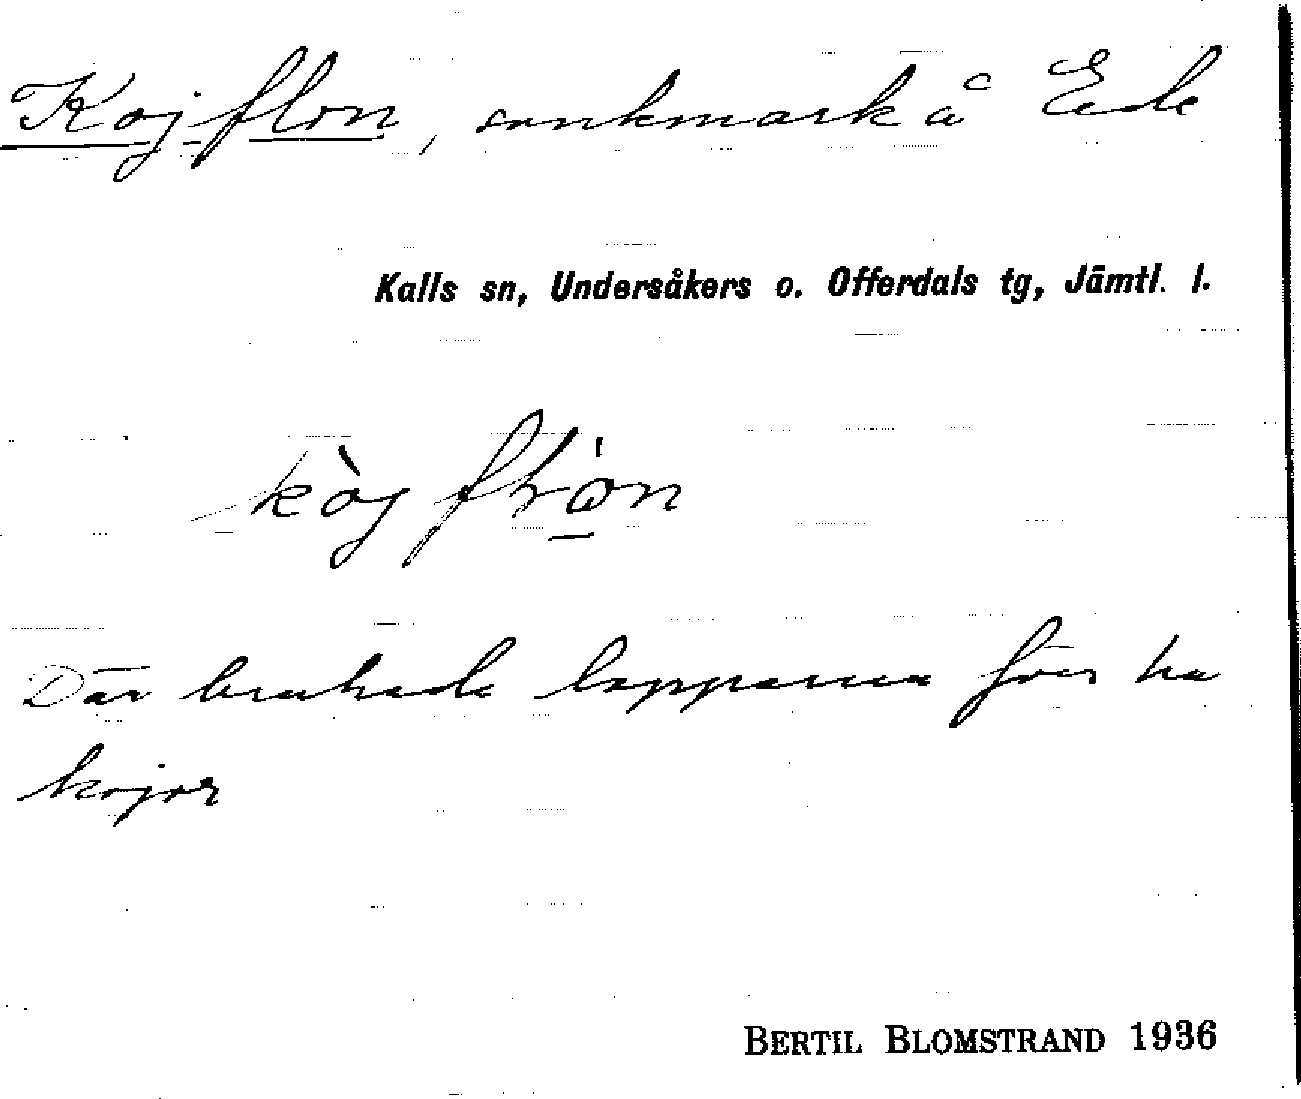 Kojflon, sankmark å Ede
Kalls sn, Undersåkers o. Offerdals tg, Jämtl. l.
Där brukade lapparna förr ha
kojor
BERTIL BLOMSTRAND 1936